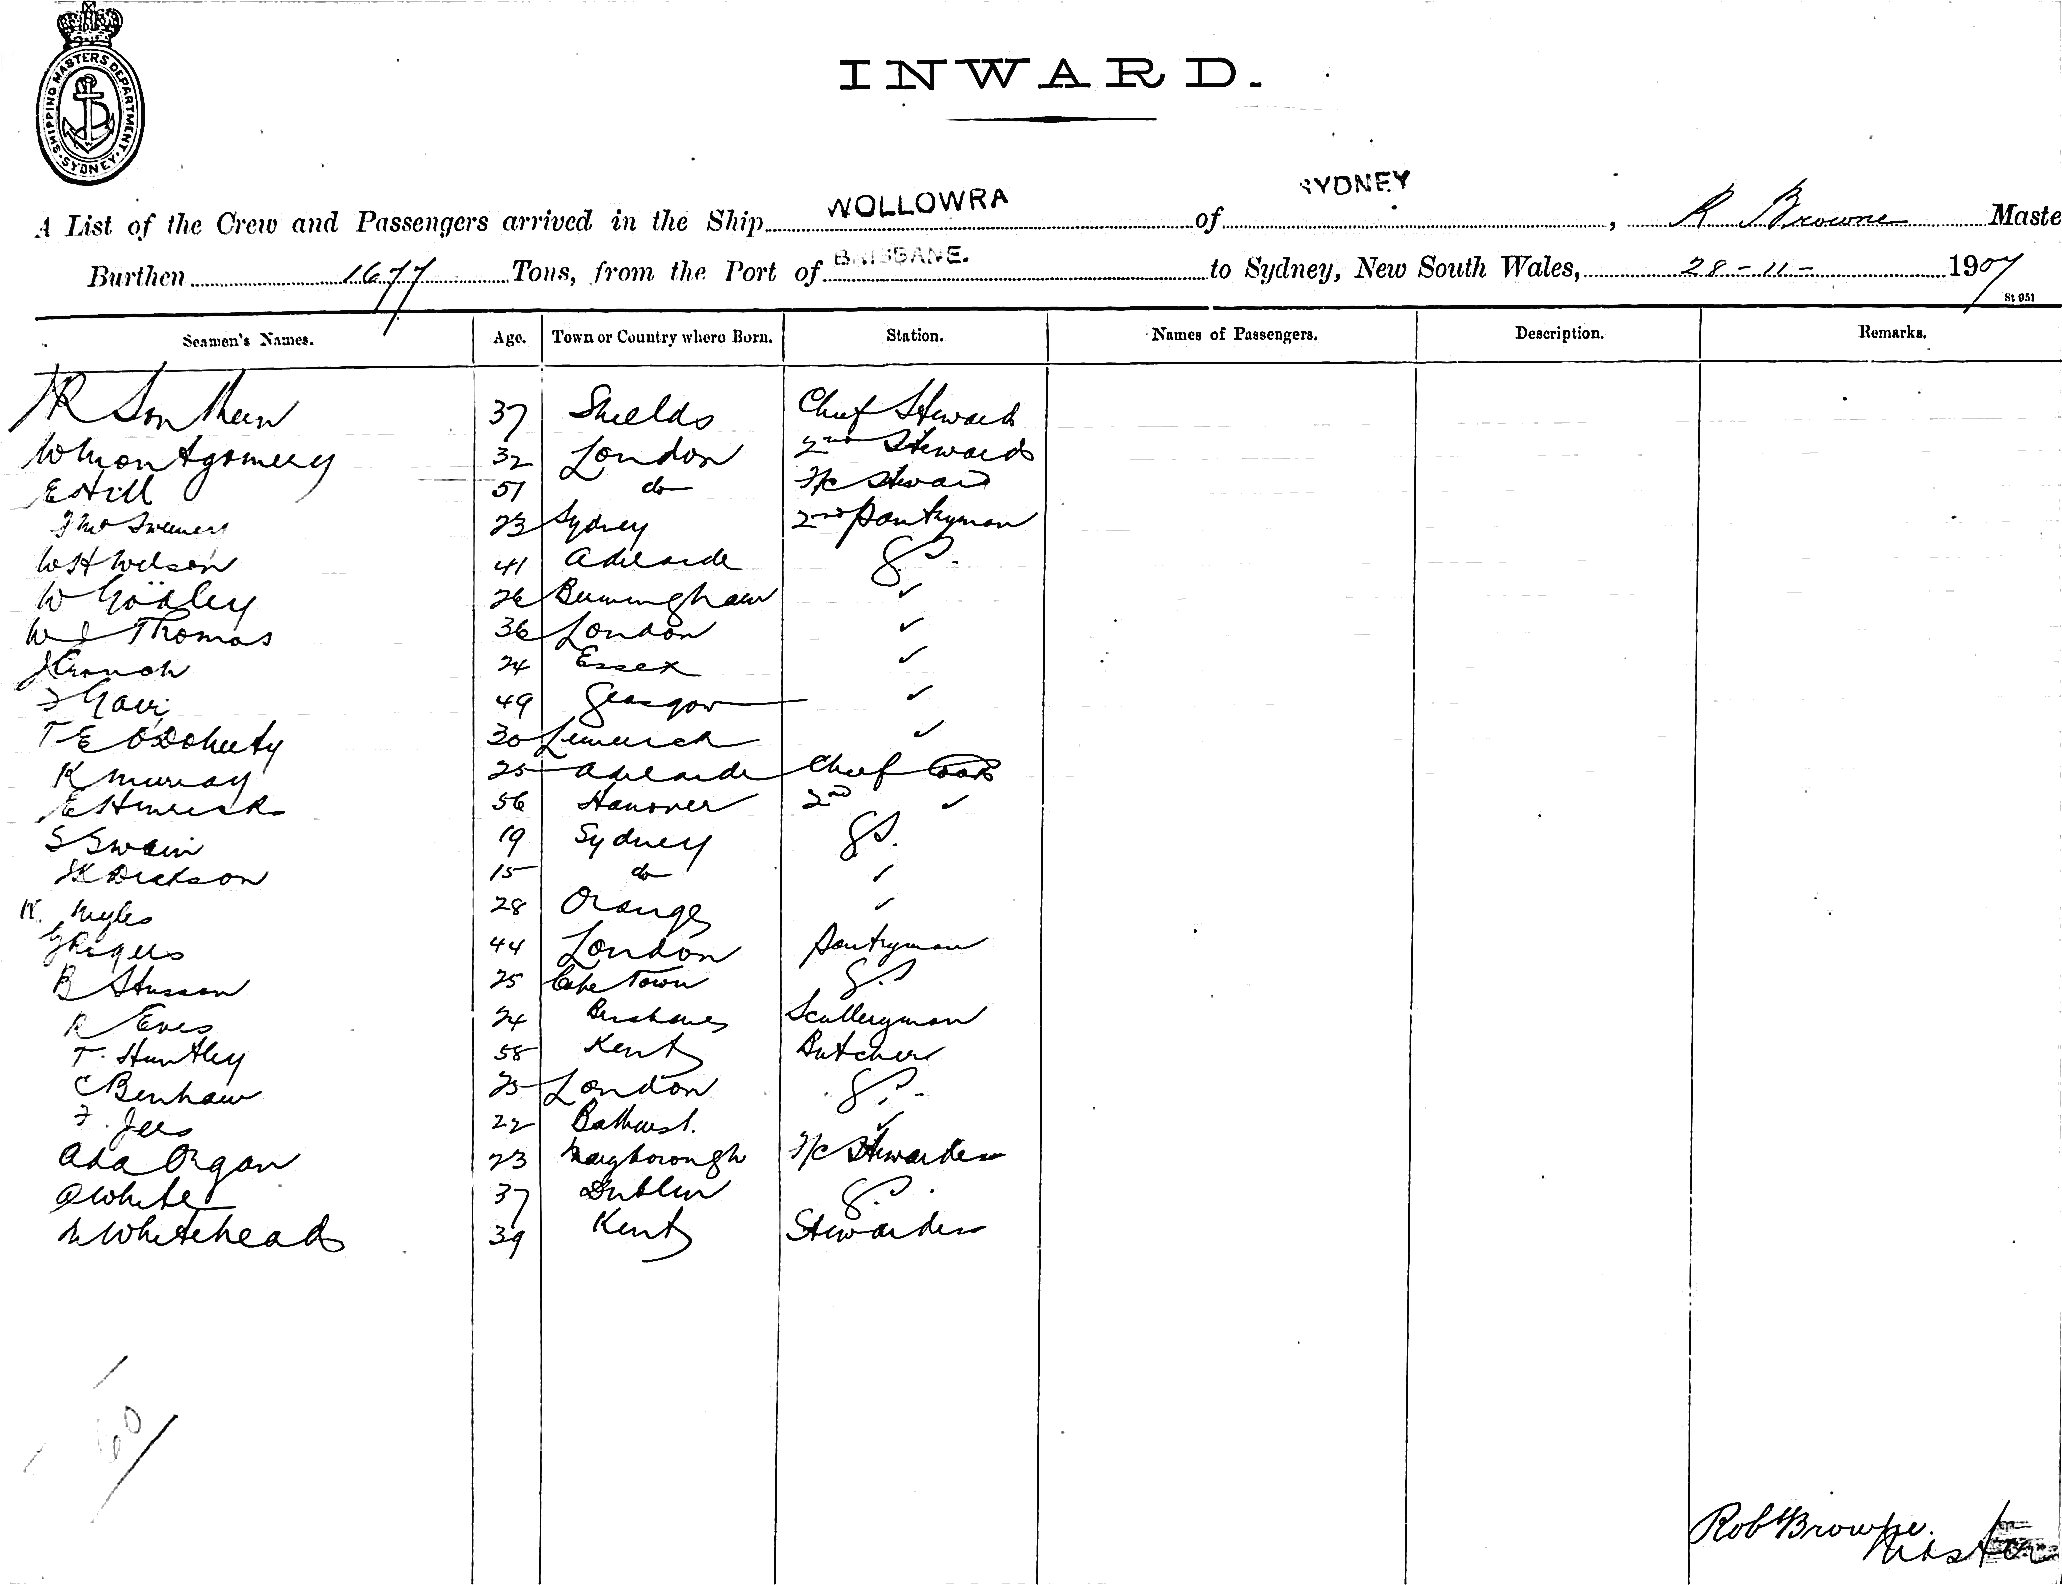 SHIPPING MASTERS DEPARTMENT SYDNEY
INWARD.
A List of the Crew and Passengers arrived in the Ship WOLLOWRA of SYDNEY, R Browne Maste
Burthen 1677 Tons, from the Port of BRISBANE. to Sydney, New South Wales, 28-11- 1907
St 951
Seamen's Names. Age. Town or Country where Born. Station. Names of Passengers. Description. Remarks.
37 Shields Chief Steward
W Montgomery 32 London 2nd Steward
E Hill 51 do F/c Steward
23 Sydney 2nd Pantryman
W H Wilson 41 Adelaide G.S.
W 26 Birmingham ✓
W J Thomas 36 London ✓
J Crouch 24 Essex ✓
49 Glasgow ✓
T E O'Doherty 30 Limerick ✓
K Murray 25 Adelaide Chief Cook
E Hinricks 56 Hanover 2nd ✓
S Swain 19 Sydney GS.
Dickson 15 do ✓
Myles 28 Orange ✓
44 London Pantryman
25 Cape Town G.S.
R Eves 24 Brisbane Sculleryman
T. Huntley 58 Kent Butcher
C Benham 25 London G.S.
F. 22 Bathurst. ✓
Ada Organ 23 Maryborough F/c Stewardess
White 37 Dublin G.S.
Whitehead 39 Kent Stewardess
60
Robt Browne.
Master